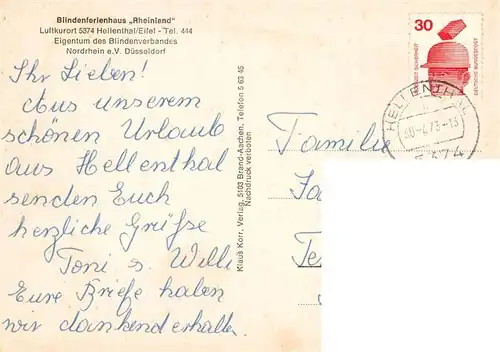 Blindenferienhaus „Rheinland"
Luftkurort 5374 Hellenthal/Eifel - Tel. 444
Eigentum des Blindenverbandes
Nordrhein e.V. Düsseldorf
Ihr Lieben!
Aus unserem
schönen Urlaub
aus Hellenthal
senden Euch
herzliche Grüße
Toni u. Willi
Eure Briefe haben
wir dankend erhalten.
Klaus Korr, Verlag, 5103 Brand-Aachen, Telefon 5 63 45
Nachdruck verboten
Familie
30
DEUTSCHE BUNDESPOST
HELLENTHAL